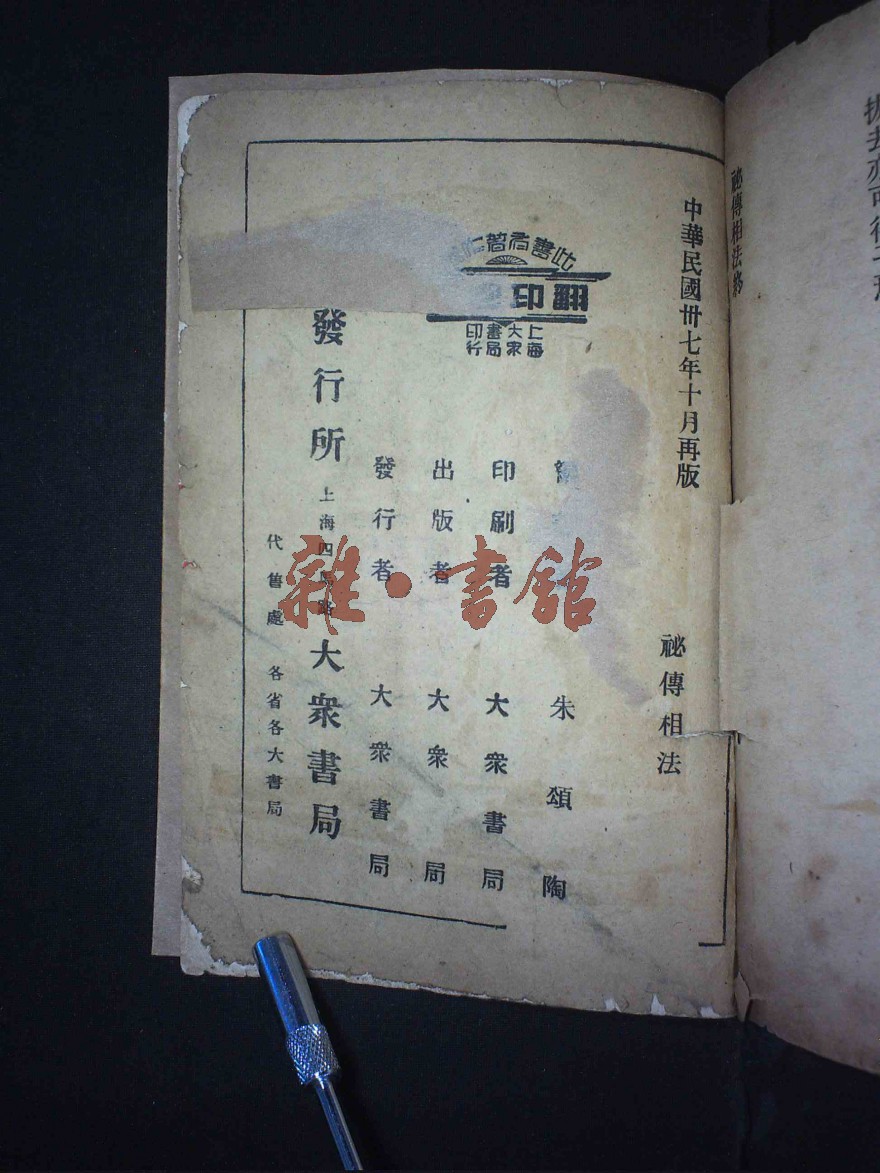 祕傳相法終
中華民國卅七年十月再版
祕傳相法
朱頌陶
印刷者 大衆書局
出版者 大衆 局
發行者 大衆書局
發行所 上海四馬路 大衆書局
代售處 各省各大書局
此書有著作
翻印
上海大衆書局印行
雜·書館